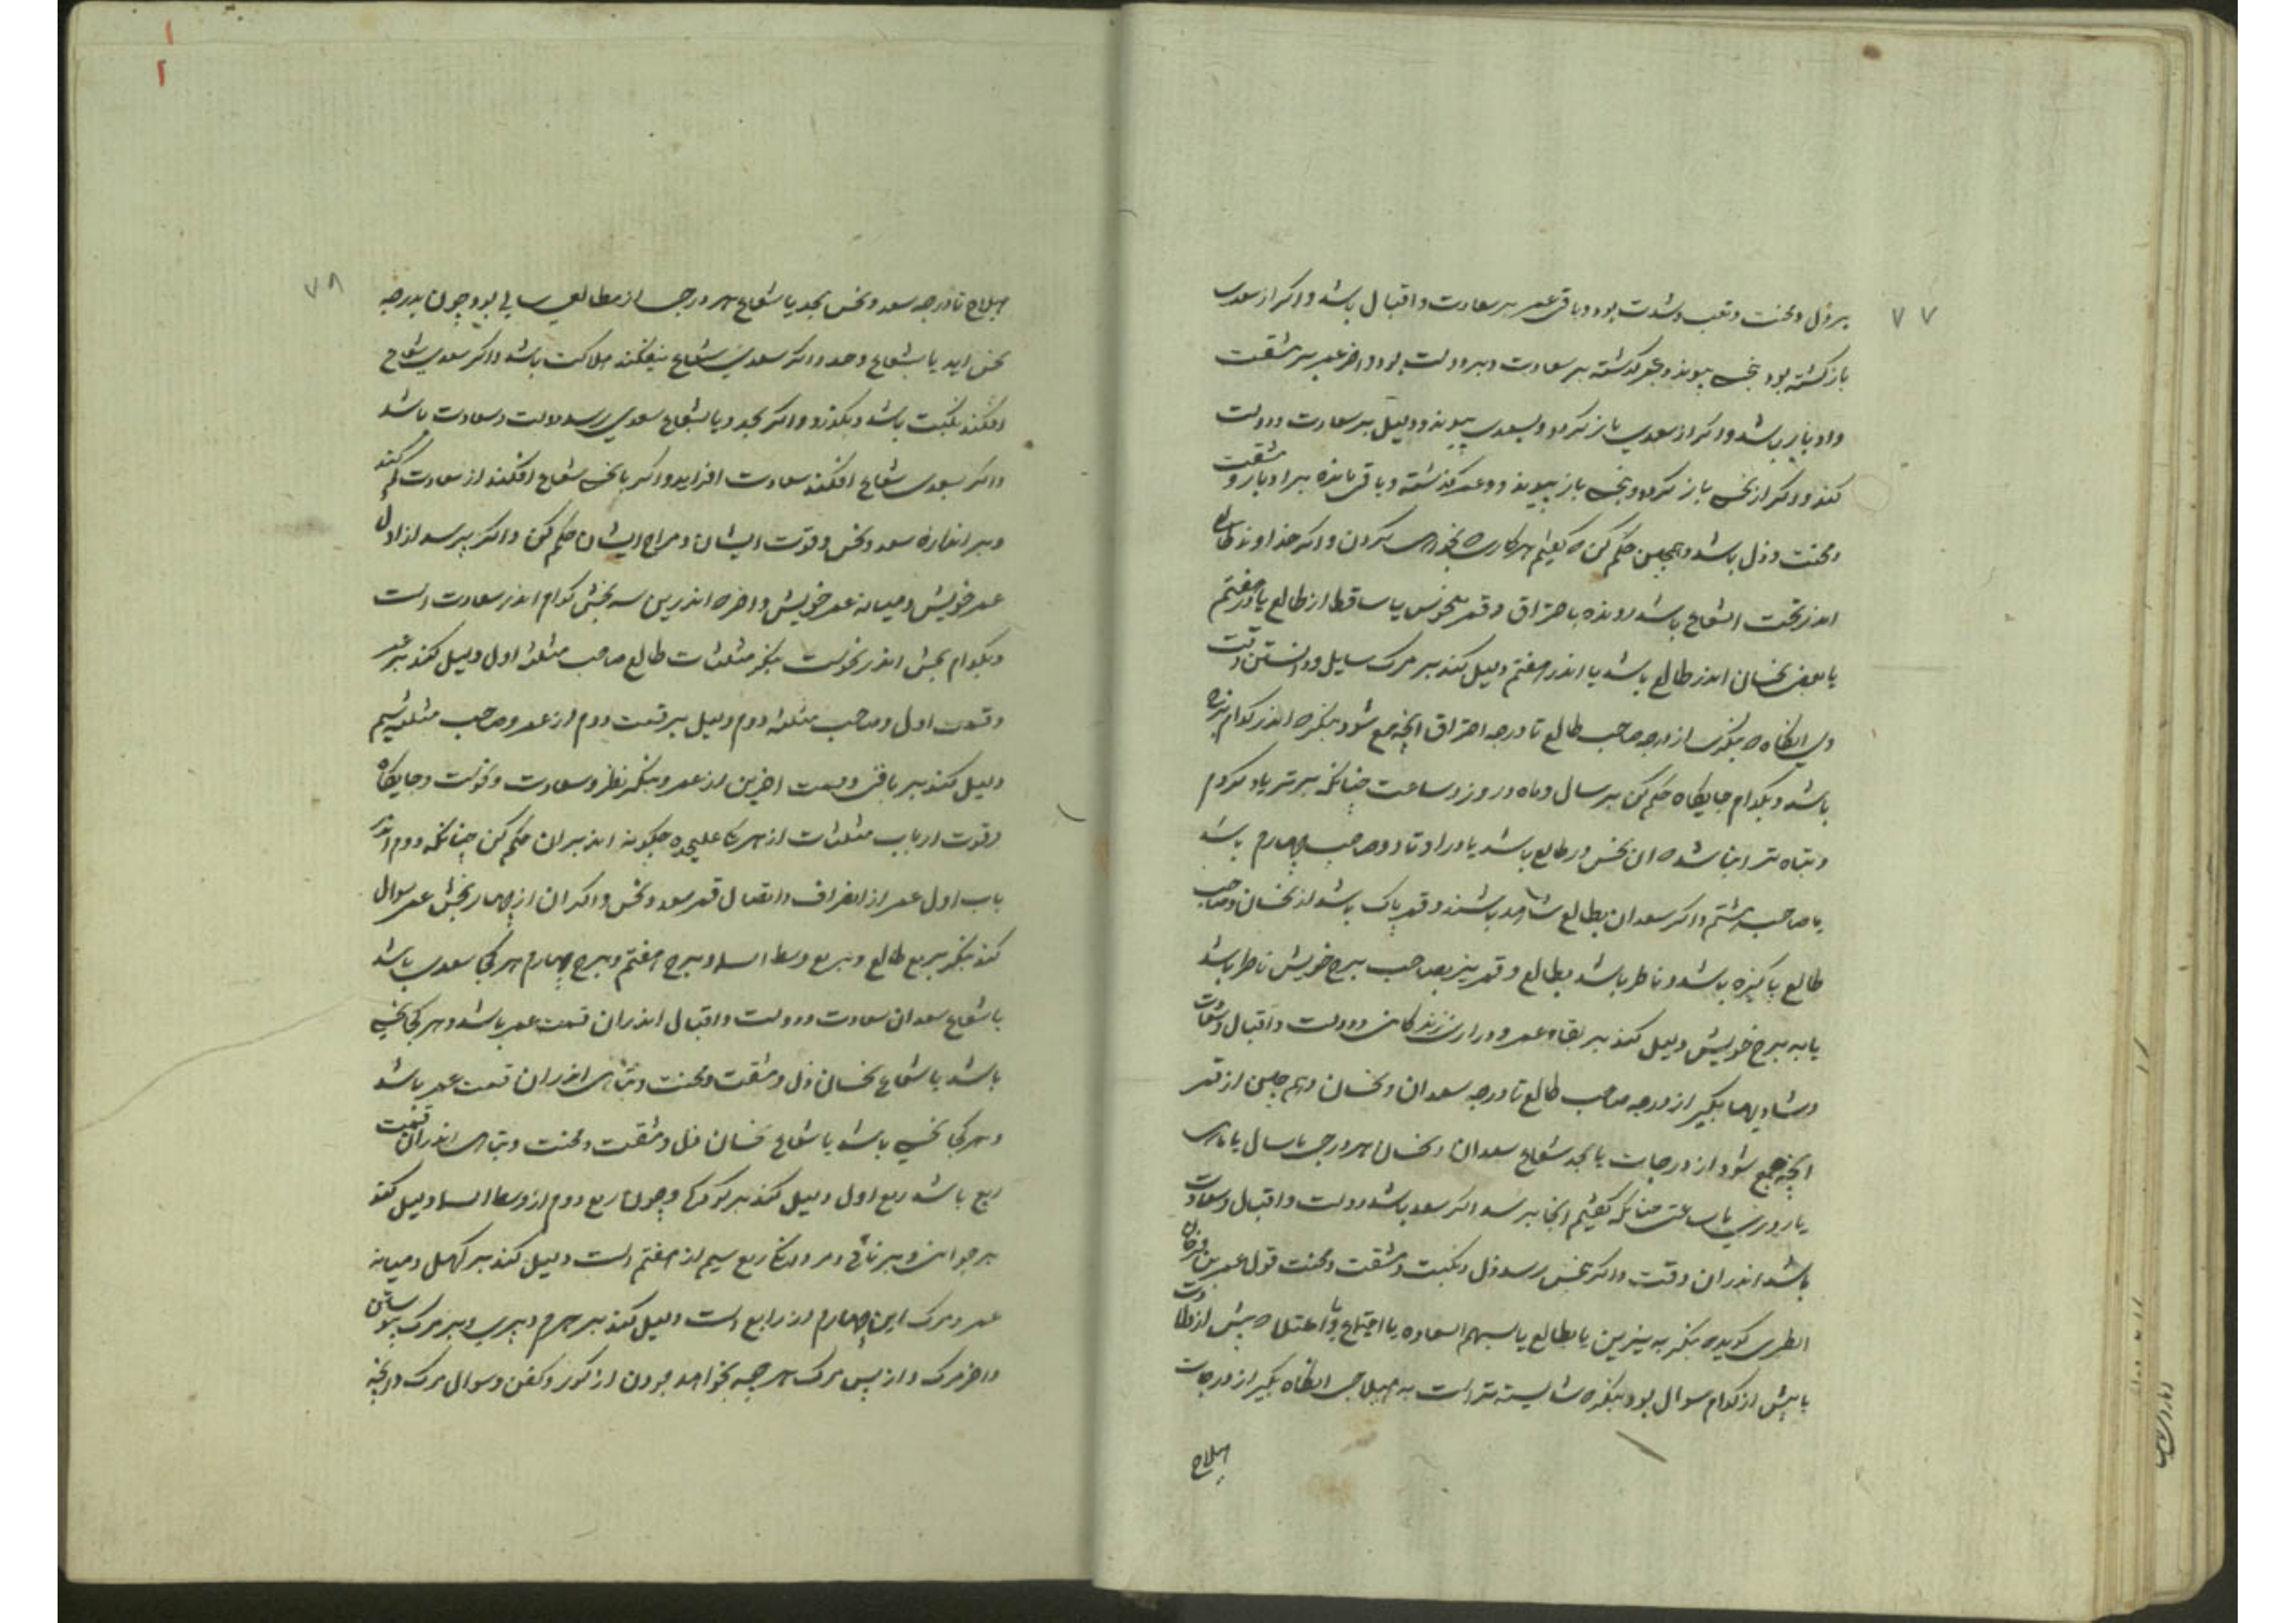 ۷۷
بر ذل و محنت و تعب و شدت بود و باقی عمر بر سعادت و اقبال باشد و اکر از سعدی
باز کشته بود بنحسی پیوندد عمر کذشته بر سعادت و بر دولت بود و اخر عمر بر مشقت
و ادبار باشد و اکر از سعدی باز کردد و بسعدی پیوندد دلیل بر سعادت و دولت
کند و اکر از نحسی باز کردد و بنحسی باز پیوندد عمر کذشته و باقی مانده بر ادبار و مشقت
و محنت و ذل باشد و همچنین حکم کن که کفتیم هر کاری که بخواهی کردن و اکر خداوند طالع
اندر تحت الشعاع باشد رونده باحتراق و قمر منحوس یا ساقط از طالع یا در هفتم
یا بعضی نحسان اندر طالع باشد یا اندر هفتم دلیل کند بر مرک سایل و دانستن وقت
وی انکاه که بنکری از درجه صاحب طالع تا درجه احتراق انچه جمع شود بنکر که اندر کدام برج
باشد و بکدام جایکاه حکم کن بر سال و ماه و روز و ساعت چنانکه بر تر یاد کردم
و تباه تر انباشد که ان نحس در طالع باشد یا در اوتاد و صاحب چهارم باشد
یا صاحب هشتم و اکر سعدان بطالع شاهد باشند و قمر پاک باشد از نحسان و صاحب
طالع پاکیزه باشد و ناظر باشد بطالع و قمر نیز بصاحب برج خویش ناظر باشد
یا به برج خویش دلیل کند بر بقاء عمر و درازی زندکانی و دولت و اقبال و سعادت
و شادیها بکیر از درجه صاحب طالع تا درجه سعدان و نحسان و هم چنین از قمر
انچه جمع شود از درجات یا بحد شعاع سعدان و نحسان هر درجی یا سال یا ماهی
یا روزی یا ساعتی چنانکه کفتیم انجا برسد اکر سعد باشد دولت و اقبال و سعادت
باشد اندر ان وقت و اکر نحس رسد ذل و نکبت و مشقت و محنت قول عمر بن فرخان
الطبری کوید که بنکر به نیرین یا بطالع یا بسهم السعاده یا اجتماع و یا امتلا که پیش از ولادت
یا پیش از کدام سوال بود بنکر که شایسته تر است به هیلاجی انکاه بکیر از درجات
هیلاج
۷۸
هیلاج تا درجه سعد و نحس بحد یا شعاع هر درجی از مطالعی سالی بود و چون بدرجه
نحس اید یا بشعاع و حد و اکر سعدی شعاع نیفکند هلاکت باشد و اکر سعدی شعاع
افکند نکبت باشد و بکذرد و اکر بحد و یا بشعاع سعدی رسد دولت و سعادت باشد
و اکر بسعدی شعاع افکند سعادت افزاید و اکر با نحسی شعاع افکند از سعادت کم کند
و بر اندازه سعد و نحس و قوت ایشان و مزاج ایشان حکم کن و اکر بپرسد از اول
عمر خویش و میانه عمر خویش و اخر که اندرین سه بخش کدام اندر سعادت است
و بکدام بخش اندر نحوست بنکر مثلثات طالع صاحب مثلثه اول دلیل کند بر عمر
و قسمت اول و صاحب مثلثه دوم دلیل بر قسمت دوم از عمر و صاحب مثلثه سیم
دلیل کند بر باقی و قسمت اخرین از عمر و بنکر نظر و سعادت و نحوست و جایکاه
و قوت ارباب مثلثات از هر یکی علیحده چکونه اند بر ان حکم کن چنانکه دوم اندر
باب اول عمر از انصراف و اتصال قمر سعد و نحس و اکر ان از چهار بخش عمر سوال
کند بنکر بربع طالع و بربع وسط السما و برج هفتم و برج چهارم هر کجا سعدی باشد
یا شعاع سعدان سعادت و دولت و اقبال اندر ان قسمت عمر باشد و هر کجا نحسی
باشد یا شعاع نحسان ذل و مشقت و محنت و تباهی اندر ان قسمت عمر باشد
و هر کجا نحسی باشد یا شعاع نحسان ذل و مشقت و محنت و تباهی اندر ان قسمت
ربع باشد ربع اول دلیل کند بر کودکی و چون ربع دوم از وسط السما دلیل کند
بر جوانی و برنائی و مردانکی ربع سیم از هفتم است دلیل کند بر کهل و میانه
عمر و مرک این چهارم از رابع است دلیل کند بر هرم و پیری و بر مرک
و اخر مرک و از پس مرک هر چه بخواهد بردن از کور و کفن و سوال مرک و انچه